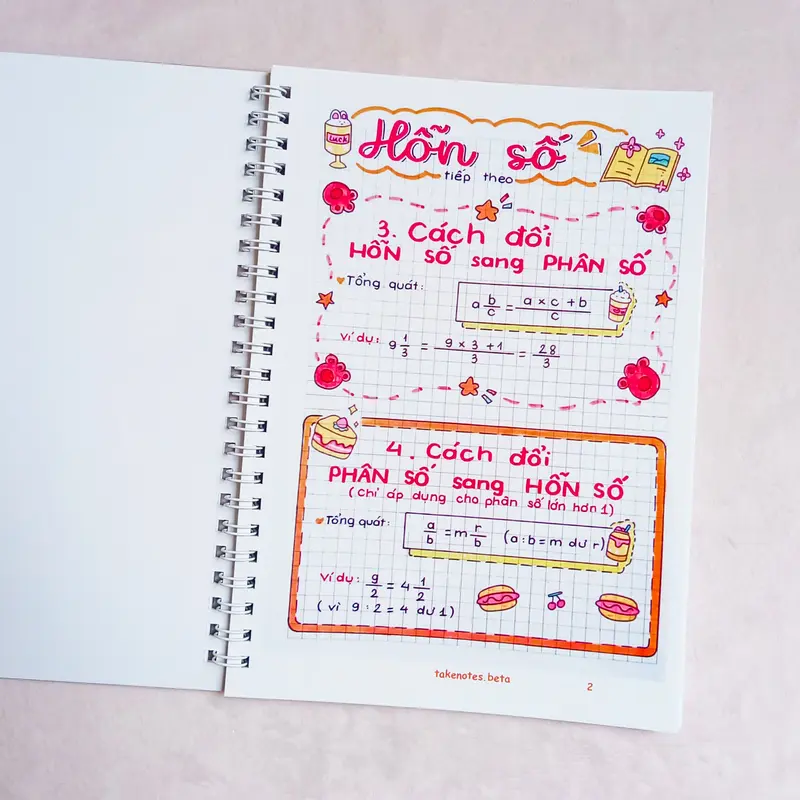 Luck
Hỗn số
tiếp theo
3. Cách đổi
HỖN SỐ sang PHÂN SỐ
Tổng quát:
a b/c = a × c + b / c
ví dụ: 9 1/3 = 9 × 3 + 1 / 3 = 28/3
4. Cách đổi
PHÂN SỐ sang HỖN SỐ
(Chỉ áp dụng cho phân số lớn hơn 1)
Tổng quát:
a/b = m r/b (a : b = m dư r)
ví dụ: 9/2 = 4 1/2
(vì 9 : 2 = 4 dư 1)
takenotes.beta
2